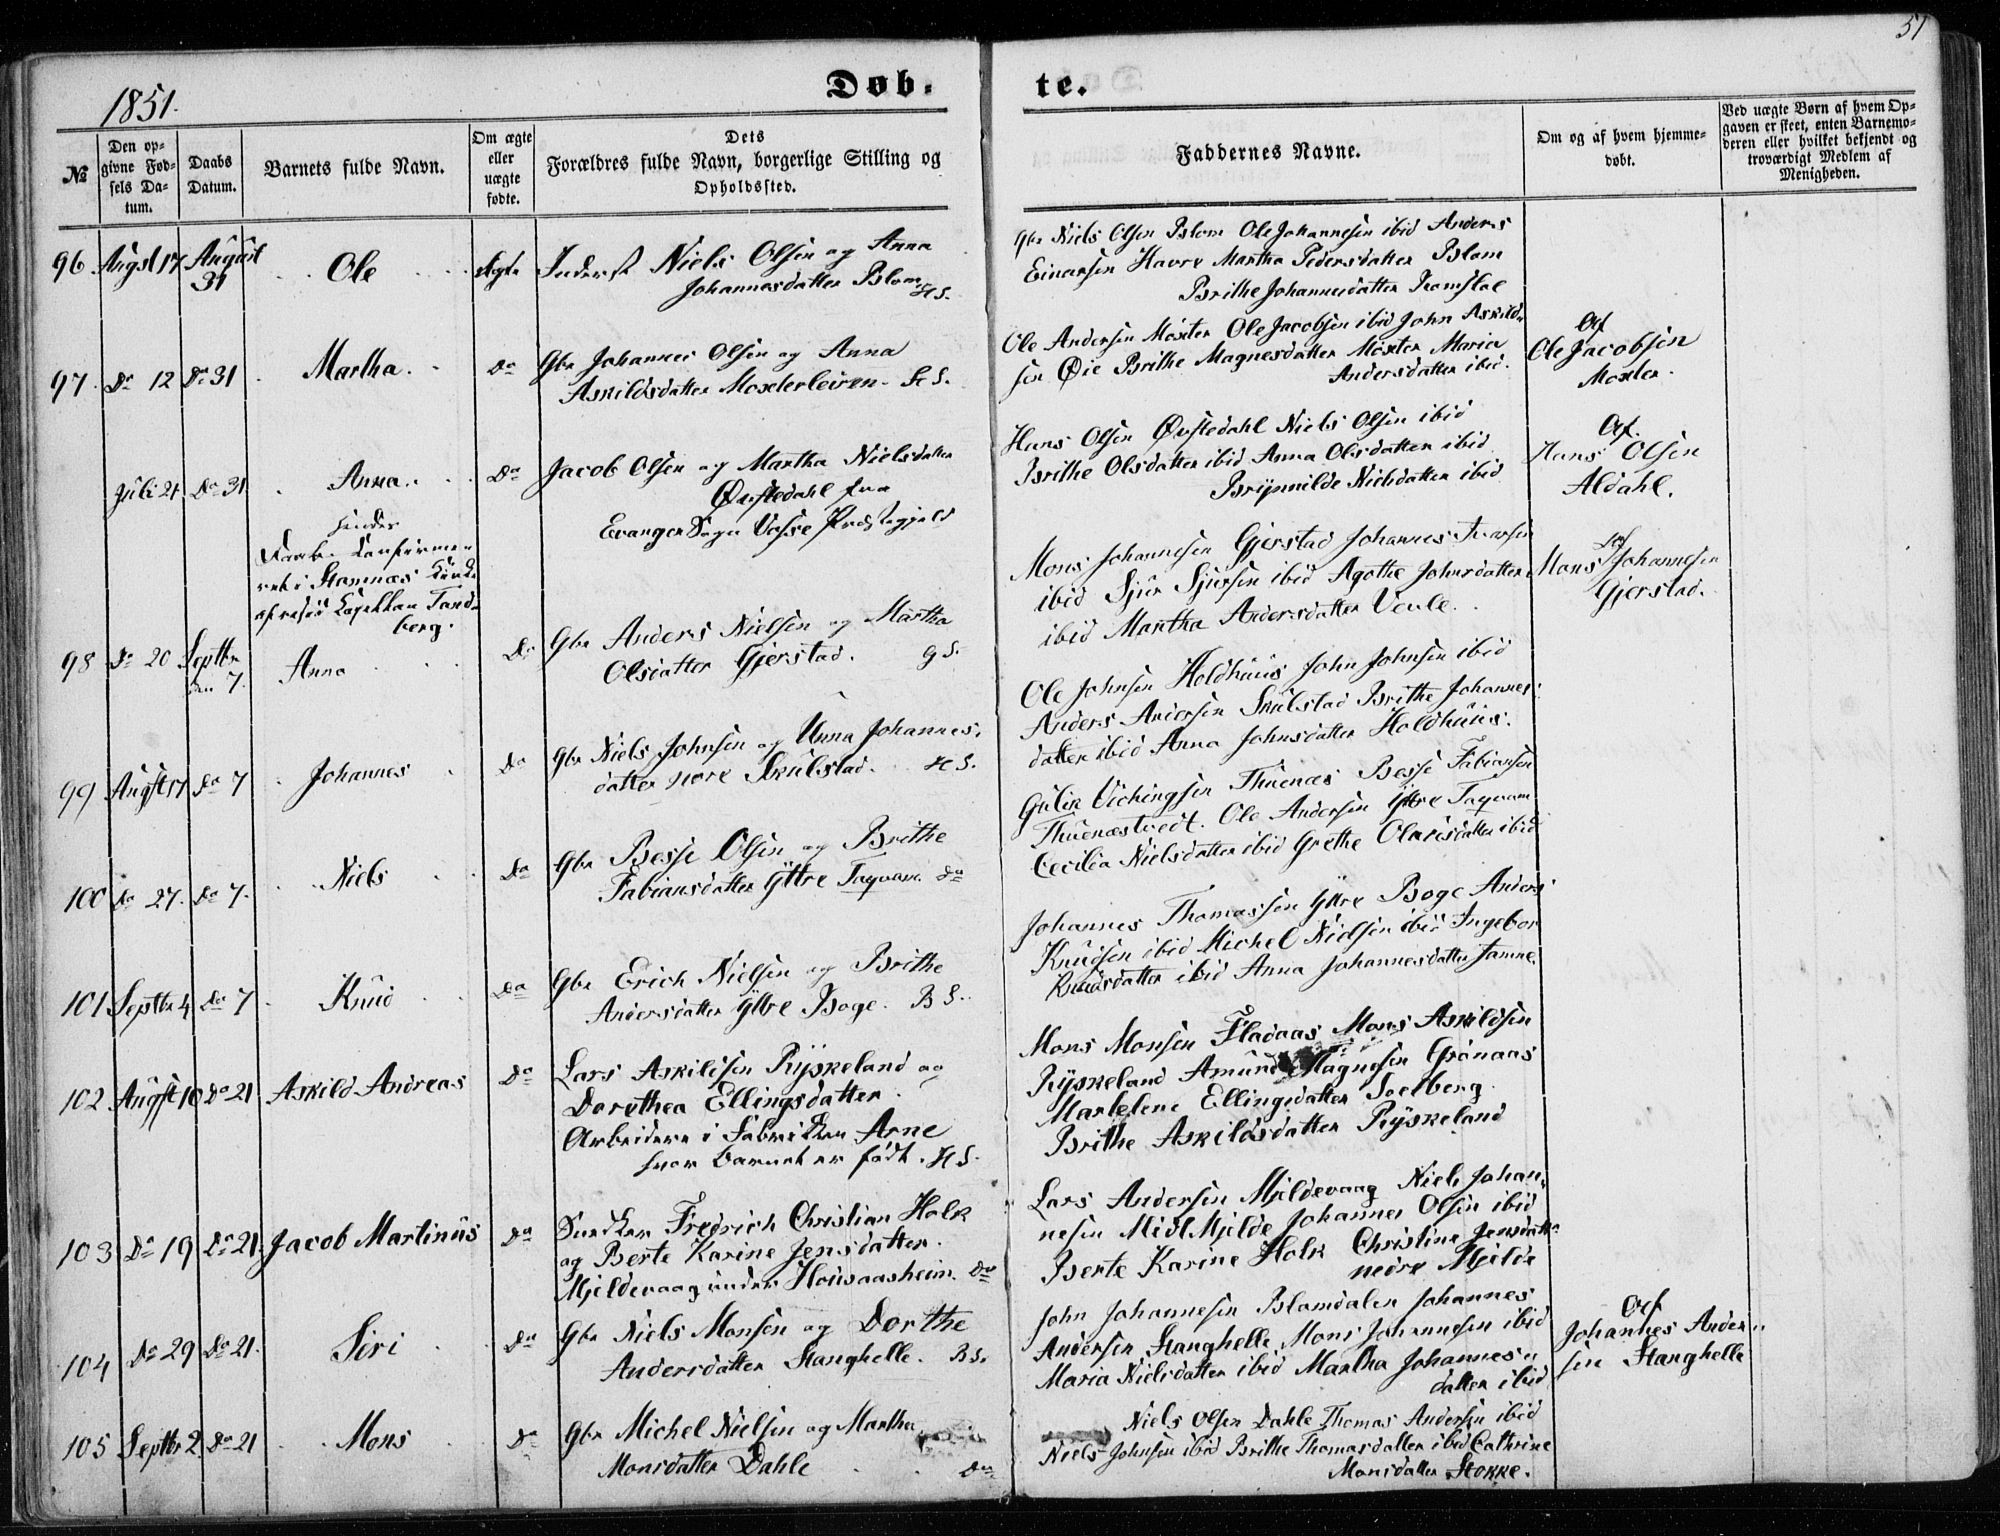 51
1851.
Døb-
te.
№
Den op-
givne Fød-
sels Da-
tum.
Daabs
Datum.
Barnets fulde Navn.
Om ægte
eller
uægte
fødte.
Dets
Forældres fulde Navn, borgerlige Stilling og
Opholdssted.
Faddernes Navne.
Om og af hvem hjemme-
døbt.
Ved uægte Børn af hvem Op-
gaven er skeet, enten Barnemo-
deren eller hvilket bekjendt og
troværdigt Medlem af
Menigheden.
96 Augst 17 August
31
Ole
Ægte
Inderst Niels Olsen og Anna
Johannesdatter Blom HS.
Gbr Niels Olsen Blom Ole Johannesen ibid Anders
Einarsen Havre Martha Pedersdatter Blom
Brithe Johannesdatter
97. Do 12 Do 31
Martha.
Do
Gbr Johannes Olsen og Anna
Askildsdatter Moxterleiren HS.
Ole Andersen Moxter Ole Jacobsen ibid John Askild-
sen Øie Brithe Magnesdatter Moxter Maria
Andersdatter ibid.
Af
Ole Jacobsen
Moxter.
Juli 21 Do 31
Anna
Do
Jacob Olsen og Martha Nielsdatter
Øvstedahl fra
Evanger Sogn Vosse Præstegjeld
Hans Olsen Øvstedahl Niels Olsen ibid
Brithe Olsdatter ibid Anna Olsdatter ibid
Brynnilde Nielsdatter ibid
Af
Hans Olsen
Aldahl.
Daab Confirme-
ret i Stamnæs Kirke
af resid Capellan Tand-
berg.
98 Do 20 Septbr
den 7.
Anna
Do
Gbr Anders Nielsen og Martha
Olsdatter Gjerstad. GS.
Mons Johannesen Gjerstad Johannes Ivarsen
ibid Sjur Sjursen ibid Agathe Johnsdatter
ibid Martha Andersdatter Veule.
Af
Mons Johannesen
Gjerstad.
99 Augst 17 Do 7
Johannes
Do
Gbr Niels Johnsen og Unna Johannes-
datter nore Skulstad. HS.
Ole Johnsen Holdhuus John Johnsen ibid
Anders Andersen Skulstad Brithe Johannes-
datter ibid Anna Johnsdatter Holdhuus.
100 Do 27. Do 7.
Niels
Do
Gbr Besse Olsen og Brithe
Fabiansdatter Yttre Taqvam Do
Gulik Vichingsen Thuenæs Besse Fabiansen
Thuenæstvedt. Ole Andersen Yttre Taqvam
Cecilia Nielsdatter ibid Grethe Olavisdatter ibid
101 Septbr 4 Do 7
Knud
Do
Gbr Erich Nielsen og Brithe
Andersdatter Yttre Boge. BS.
Johannes Thomassen Yttre Boge Anders
Knudsen ibid Michel Nielsen ibid Ingebor
Knudsdatter ibid Anna Johannesdatter Jamne.
102 Augst 10 Do 21
Askild Andreas
Do
Lars Askildsen Ryskeland og
Dorothea Ellingsdatter.
Arbeidere i Fabrikken Arne
hvor Barnet er født. HS.
Mons Monsen Fladaas Mons Askildsen
Ryskeland Amund Magnesen Grønaas
Marlelene Ellingsdatter Soelberg
Brithe Askildsdatter Ryskeland
103 Do 19 Do 21.
Jacob Martinus
Do
Snedker Fredrich Christian Holk
og Berte Karine Jensdatter.
Mjeldevaag under Houvaasheim. Do
Lars Andersen Mjeldevaag Niels Johan-
nesen Midt Mjelde Johannes Olsen ibid
Berte Karine Holk Christine Jensdatter
nedre Mjelde
104 Do 29 Do 21.
Siri
Do
Gbr Niels Monsen og Dorthe
Andersdatter Stanghelle. BS.
John Johannesen Blomdalen Johannes
Andersen Stanghelle Mons Johannesen ibid
Maria Nielsdatter ibid Martha Johannes-
datter ibid
Af
Johannes Ander-
sen Stanghelle
105 Septbr 2. Do 21
Mons
Do
Gbr Michel Nielsen og Martha
Monsdatter Dahle Do
Niels Olsen Dahle Thomas Andersen ibid
Niels Johnsen ibid Brithe Thomasdatter ibid Cathrine
Monsdatter Stokke.